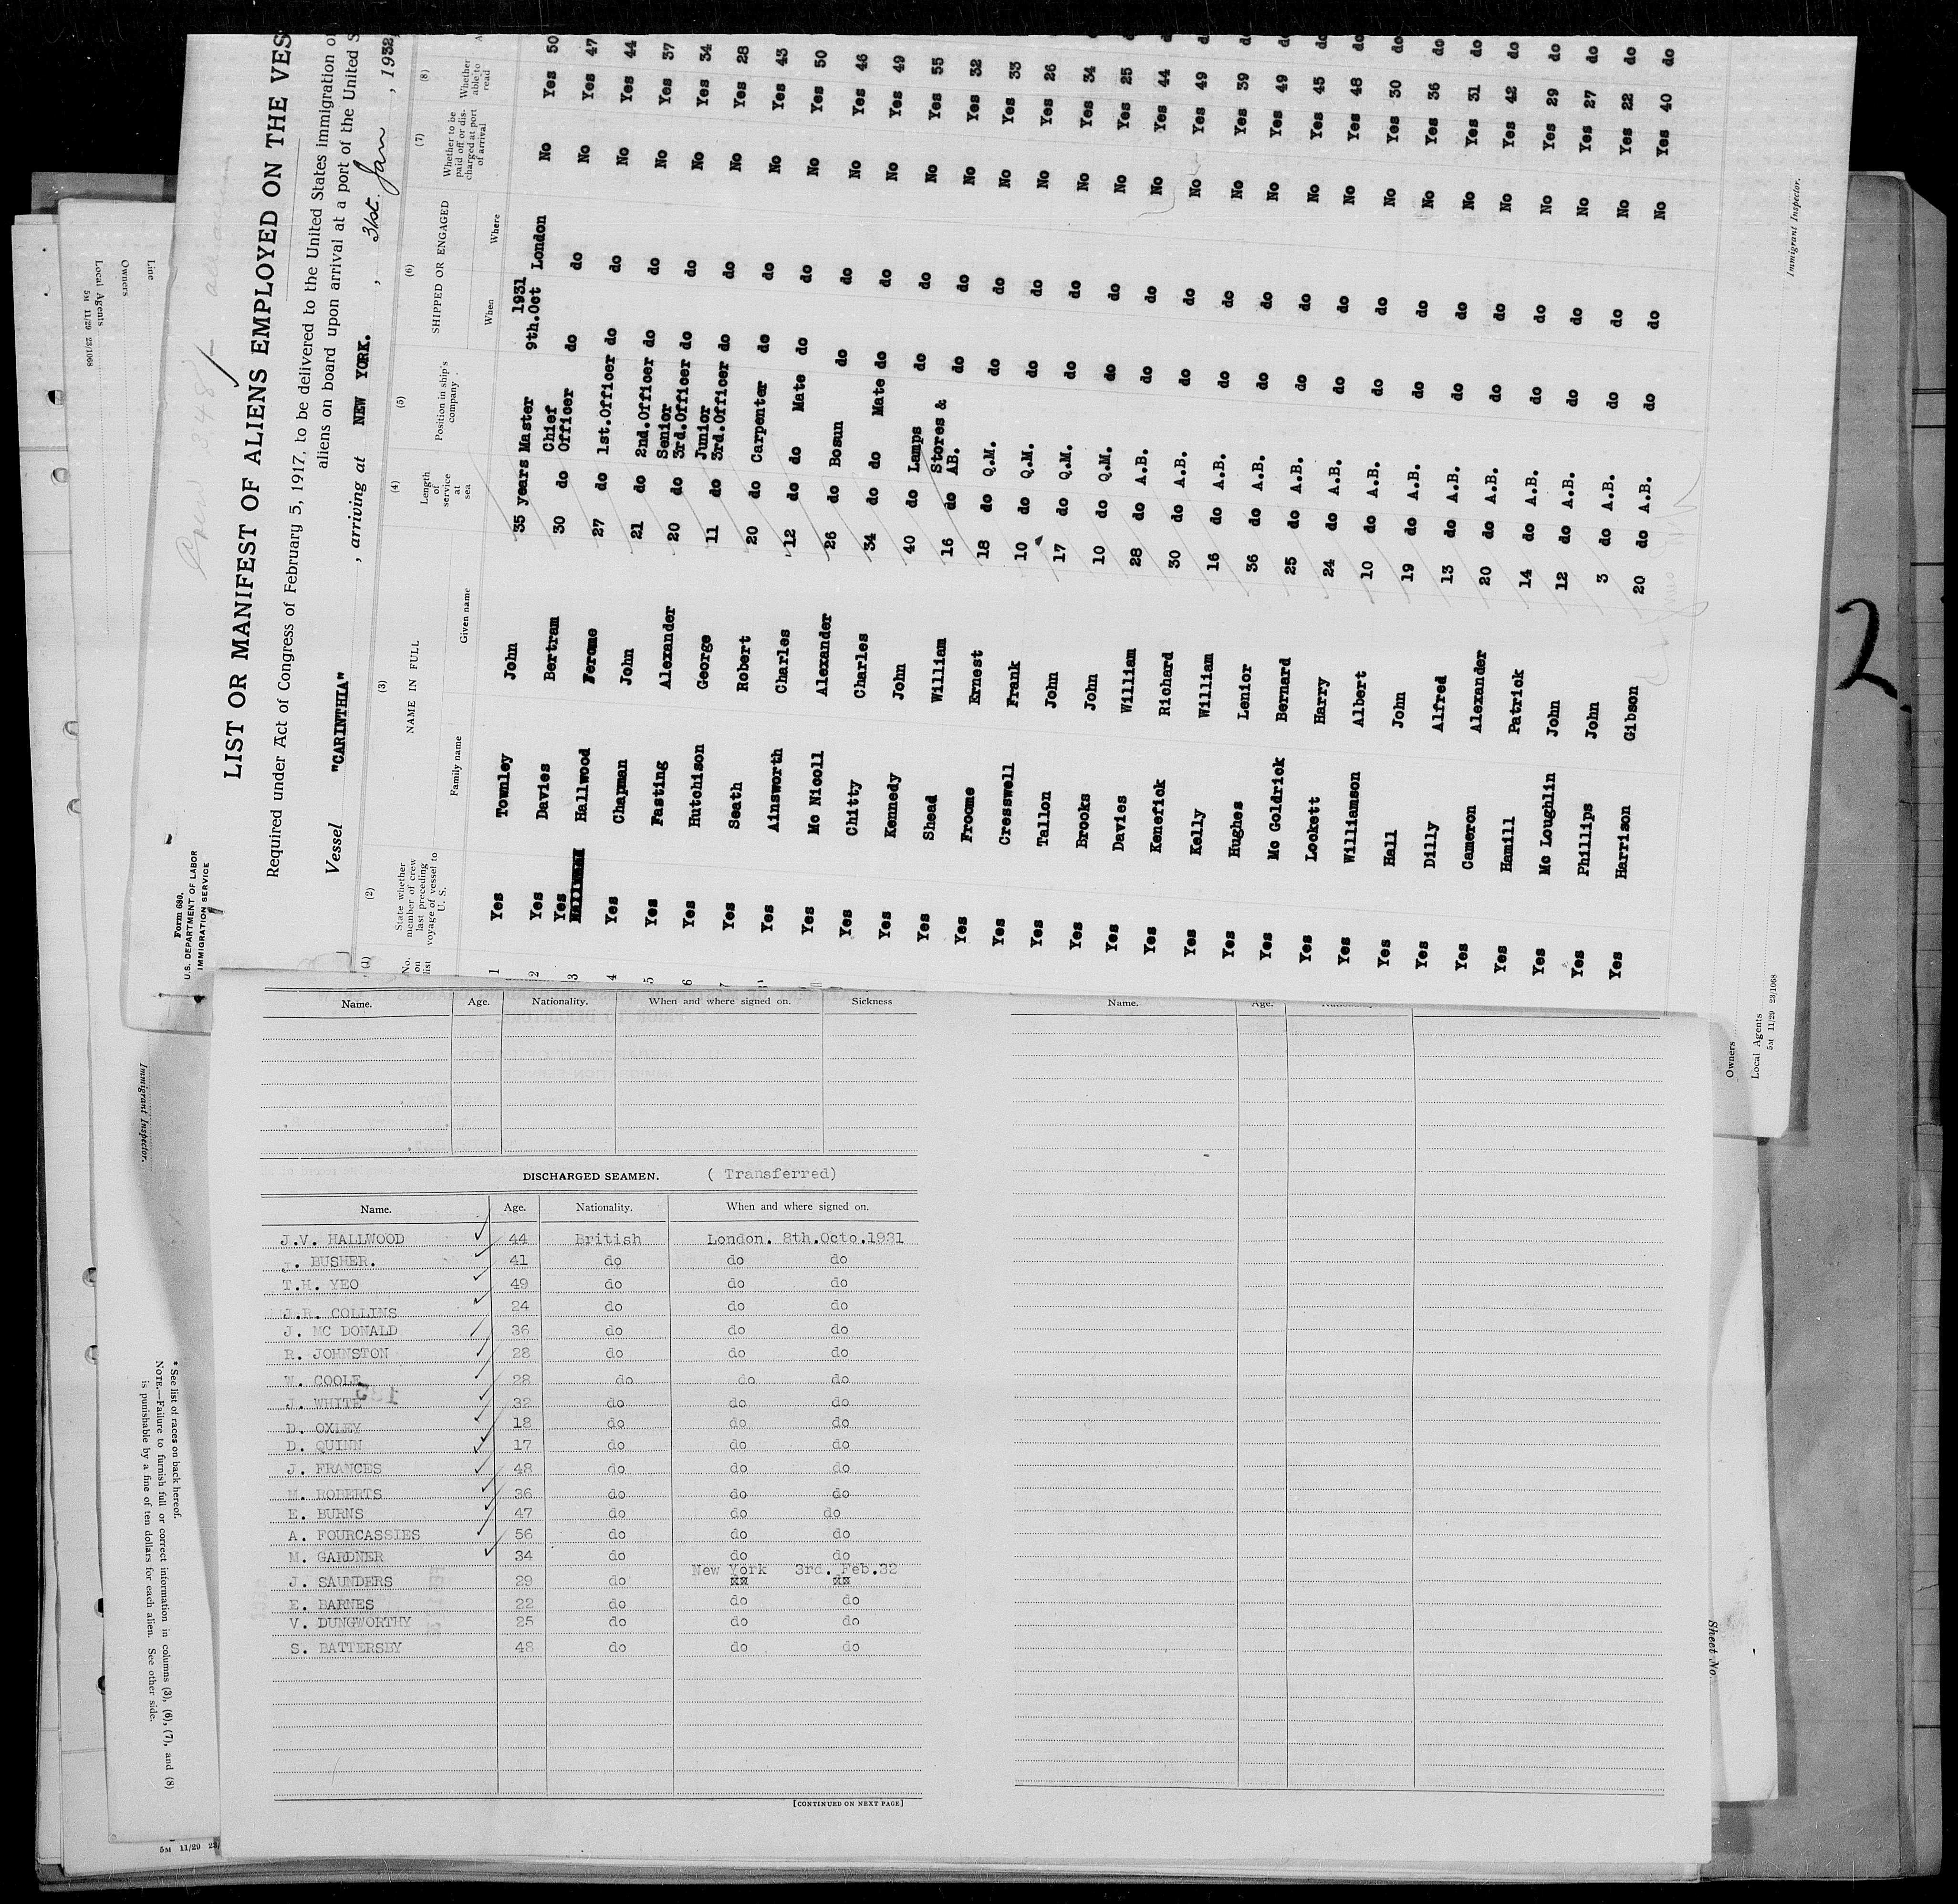 Form 680.
U.S. DEPARTMENT OF LABOR
IMMIGRATION SERVICE
LIST OR MANIFEST OF ALIENS EMPLOYED ON THE VES
Required under Act of Congress of February 5, 1917, to be delivered to the United States immigration
aliens on board upon arrival at a port of the United S
Vessel "CARINTHIA" , arriving at NEW YORK. , 31st. Jan , 1932,
(1) (2) (3) (4) (5) (6) (7) (8)
No. on list
State whether member of crew last preceding voyage of vessel to U. S.
NAME IN FULL
Family name Given name
Length of service at sea
Position in ship's company
SHIPPED OR ENGAGED
When Where
Whether to be paid off or discharged at port of arrival
Whether able to read
1 Yes Townley John 35 years Master 1931 9th.Oct London No Yes 50
2 Yes Davies Bertram 30 do Chief Officer do do No Yes 47
3 Yes Hallwood Ferome 27 do 1st.Officer do do No Yes 44
4 Yes Chapman John 21 do 2nd.Officer do do No Yes 37
5 Yes Fasting Alexander 20 do Senior 3rd.Officer do do No Yes 34
6 Yes Hutchison George 11 do Junior 3rd.Officer do do No Yes 28
7 Yes Seath Robert 20 do Carpenter do do No Yes 43
Yes Ainsworth Charles 12 do do Mate do do No Yes 50
Yes Mc Nicoll Alexander 26 do Bosun do do No Yes 46
Yes Chitty Charles 34 do do Mate do do No Yes 49
Yes Kennedy John 40 do Lamps do do No Yes 55
Yes Shead William 16 do Stores & AB. do do No Yes 32
Yes Froome Ernest 18 do Q.M. do do No Yes 33
Yes Cresswell Frank 10 do Q.M. do do No Yes 26
Yes Tallon John 17 do Q.M. do do No Yes 34 do
Yes Brooks John 10 do Q.M. do do No Yes 25 do
Yes Davies William 28 do A.B. do do No Yes 44 do
Yes Kenefick Richard 30 do A.B. do do No Yes 49 do
Yes Kelly William 16 do A.B. do do No Yes 39 do
Yes Hughes Lenior 36 do A.B. do do No Yes 49 do
Yes Mc Goldrick Bernard 25 do A.B. do do No Yes 45 do
Yes Lockett Harry 24 do A.B. do do No Yes 48 do
Yes Williamson Albert 10 do A.B. do do No Yes 30 do
Yes Hall John 19 do A.B. do do No Yes 36 do
Yes Dilly Alfred 13 do A.B. do do No Yes 31 do
Yes Cameron Alexander 20 do A.B. do do No Yes 42 do
Yes Hamill Patrick 14 do A.B. do do No Yes 29 do
Yes Mc Loughlin John 12 do A.B. do do No Yes 27 do
Yes Phillips John 3 do A.B. do do No Yes 22 do
Yes Harrison Gibson 20 do A.B. do do No Yes 40 do
Immigrant Inspector.
Owners
Local Agents
5M 11/29 23/1068
2
Line
Owners
Local Agents
5M 11/29 23/1068
Immigrant Inspector.
* See list of races on back hereof.
NOTE.—Failure to furnish full or correct information in columns (3), (6), (7), and (8)
is punishable by a fine of ten dollars for each alien. See other side.
5M 11/29 23/
Sheet No.
Name. Age. Nationality. When and where signed on. Sickness
Name. Age.
DISCHARGED SEAMEN. ( Transferred)
Name. Age. Nationality. When and where signed on.
J.V. HALLWOOD 44 British London. 8th.Octo.1931
J. BUSHER. 41 do do do
T.H. YEO 49 do do do
J.R. COLLINS 24 do do do
J. MC DONALD 36 do do do
R. JOHNSTON 28 do do do
W. COOLE 28 do do do
J. WHITE 32 do do do
D. OXLEY 18 do do do
D. QUINN 17 do do do
J. FRANCES 48 do do do
M. ROBERTS 36 do do do
E. BURNS 47 do do do
A. FOURCASSIES 56 do do do
M. GARDNER 34 do do do
New York 3rd. Feb.32
J. SAUNDERS 29 do xx xx
E. BARNES 22 do do do
V. DUNGWORTHY 25 do do do
S. BATTERSBY 48 do do do
[CONTINUED ON NEXT PAGE]